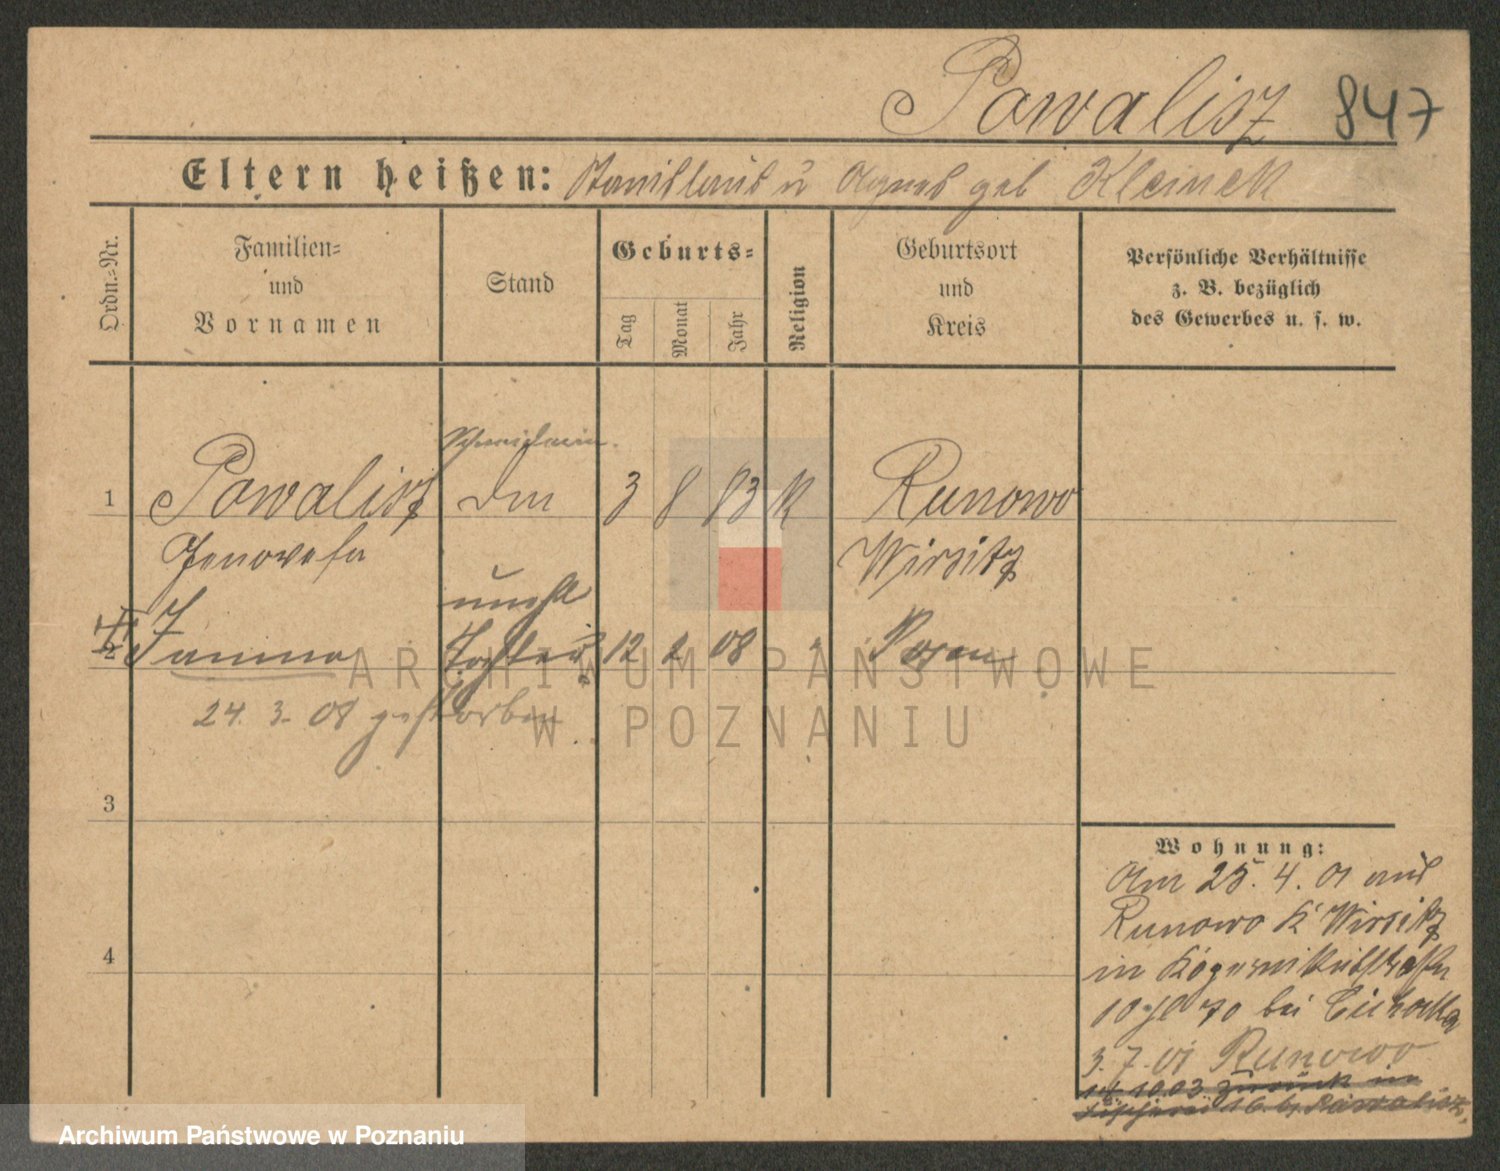 Powalisz 847
Eltern heißen: Stanislaus u Agnes geb Kleinek
Ordn.-Nr.
Familien-
und
Vornamen
Stand
Geburts-
Tag
Monat
Jahr
Religion
Geburtsort
und
Kreis
Persönliche Verhältnisse
z. B. bezüglich
des Gewerbes u. s. w.
1 Powalisz 3 8 83 K Runowo
Genovefa Wirsitz
unehl
2 Janina Tochter 12 2 08 Posen
24. 3. 08 gestorben
3
4
Wohnung:
Am 25. 4. 01 aus
Runowo K Wirsitz
in
10 bei
3. 7. 01 Runowo
14 10 03 zurück in
Powalisz
ARCHIWUM PAŃSTWOWE
W POZNANIU
Archiwum Państwowe w Poznaniu